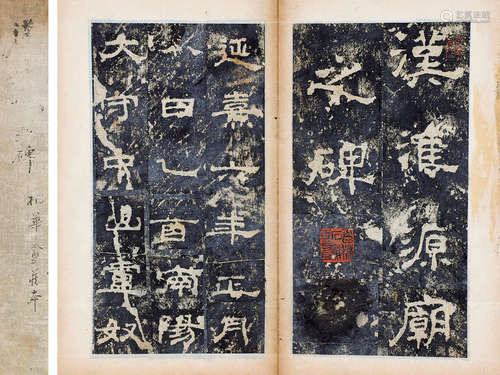 漢淮源廟
之碑
延熹六年正月
八日乙酉南陽
大守中山盧奴
碑